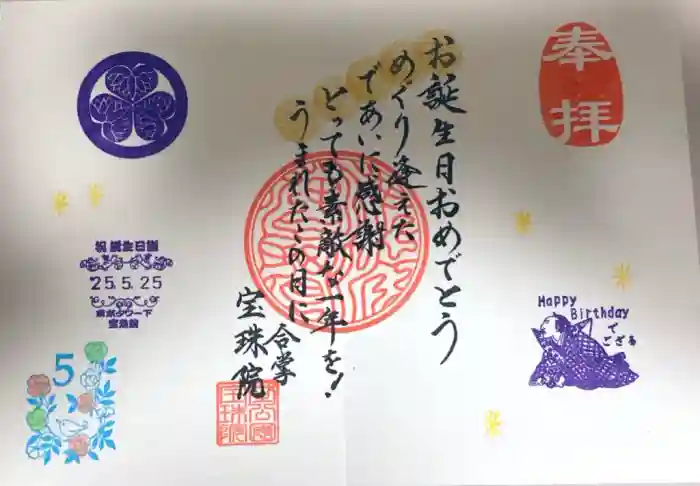 奉拝
お誕生日おめでとう
めぐり逢えた
であいに感謝
とっても素敵な一年を!
うまれたこの日に
合掌
宝珠院
祝 誕生日祭
'25.5.25
東京タワー下
宝珠院
5
Happy
Birthday
で
ござる